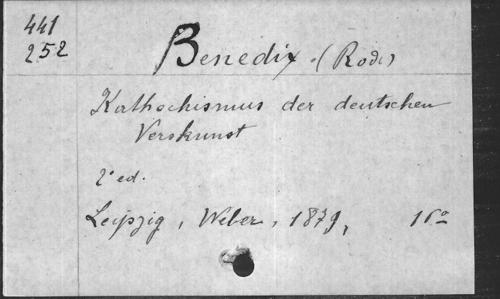 441
252
Benedix (Rode)
Kathechismus der deutschen
Verskunst
2ª ed.
Leipzig, Weber, 1879, 16º